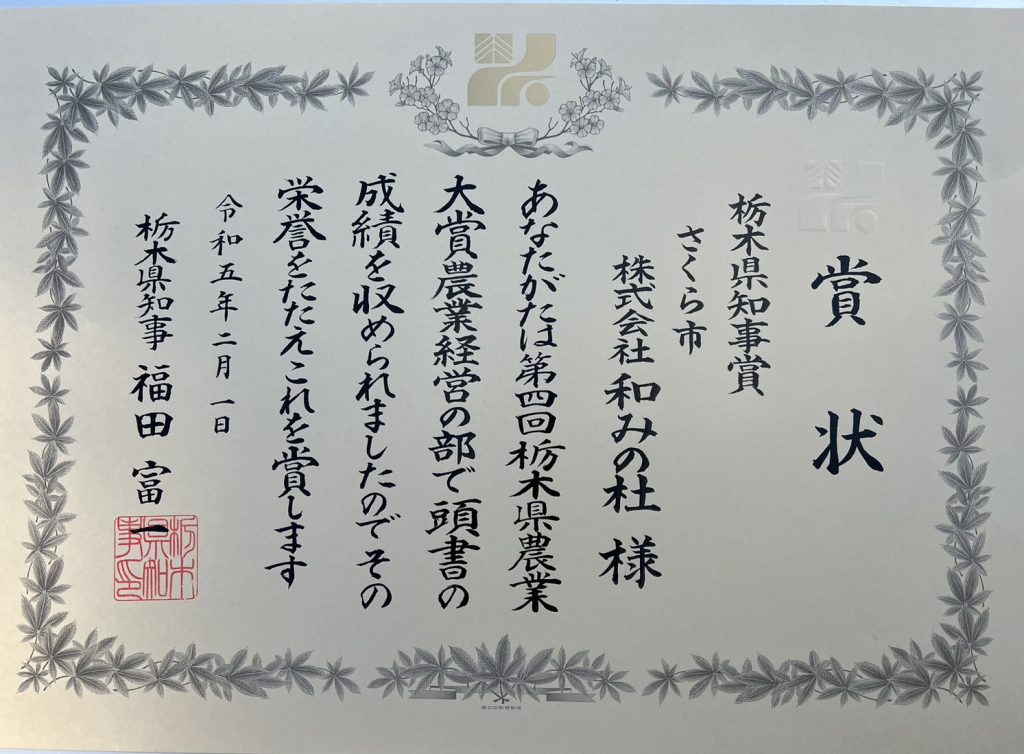 賞状
栃木県知事賞
さくら市
株式会社 和みの杜 様
あなたがたは第四回栃木県農業
大賞農業経営の部で頭書の
成績を収められましたのでその
栄誉をたたえこれを賞します
令和五年二月一日
栃木県知事 福田富一
栃木
県知
事印